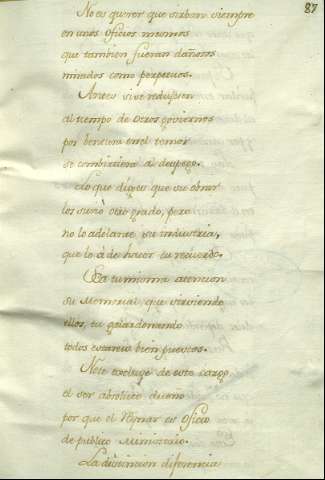 87
No es querer que sirban siempre
en unos oficios mesmos
que tambien fueran dañosos
mirados como perpetuos.
Antes si se redusesen
al tiempo de otros goviernos
por bentura en el temor
se combirtiera el despego.
Lo que digres que su obrar
los subió otro grado, pero
no lo adelante su industria,
que lo â de hacer tu recuerdo.
Sea tu misma atencion
su Memorial, que sirviendo
ellos, tu galardonando
todos estareis bien puestos.
No te excluye de este cargo
el ser absoluto dueño
por que el Reynar es oficio
de publico Ministerio.
La distincion diferencia